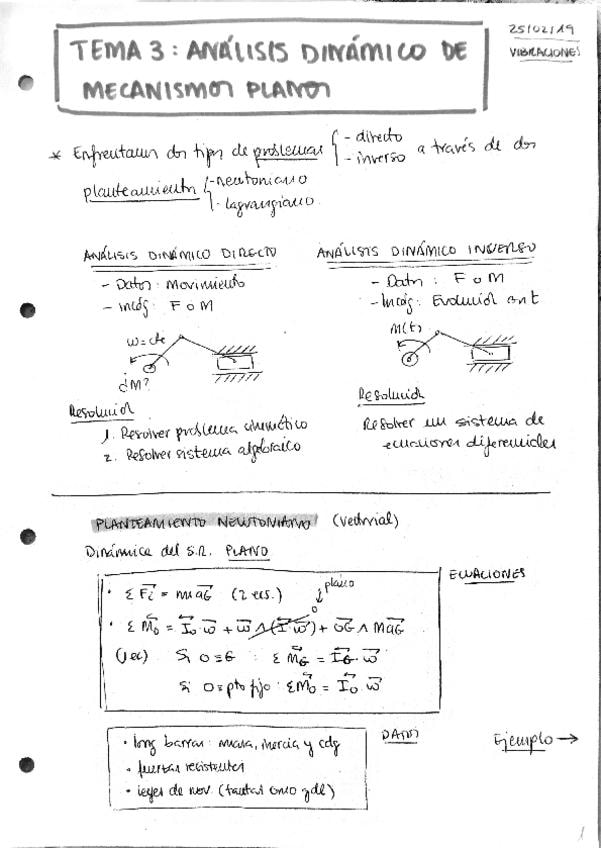 25/02/19
VIBRACIONES
TEMA 3: ANÁLISIS DINÁMICO DE
MECANISMOS PLANOS
* Enfrentamos dos tipos de problemas - directo - inverso a través de dos
planteamientos - newtoniano - lagrangiano.
ANÁLISIS DINÁMICO DIRECTO
- Datos: Movimiento
- Incóg: F o M
ω = cte
¿M?
Resolución
1. Resolver problema cinemático
2. Resolver sistema algebraico
ANÁLISIS DINÁMICO INVERSO
- Datos: F o M
- Incóg: Evolución en t
M(t)
Resolución
Resolver un sistema de
ecuaciones diferenciales
PLANTEAMIENTO NEWTONIANO (vectorial)
Dinámica del S.R. PLANO
ECUACIONES
· Σ Fi = m aG (2 ecs.)
plano
0
· Σ Mo = Io · ω + ω ∧ (I · ω) + OG ∧ M aG
(1 ec) Si O ≡ G : Σ MG = IG · ω
Si O ≡ pto fijo : Σ Mo = Io · ω
DATOS
· long barras: masa, inercia y cdg
· fuerzas resistentes
· leyes de mov. (tantas como gdl)
Ejemplo →
1